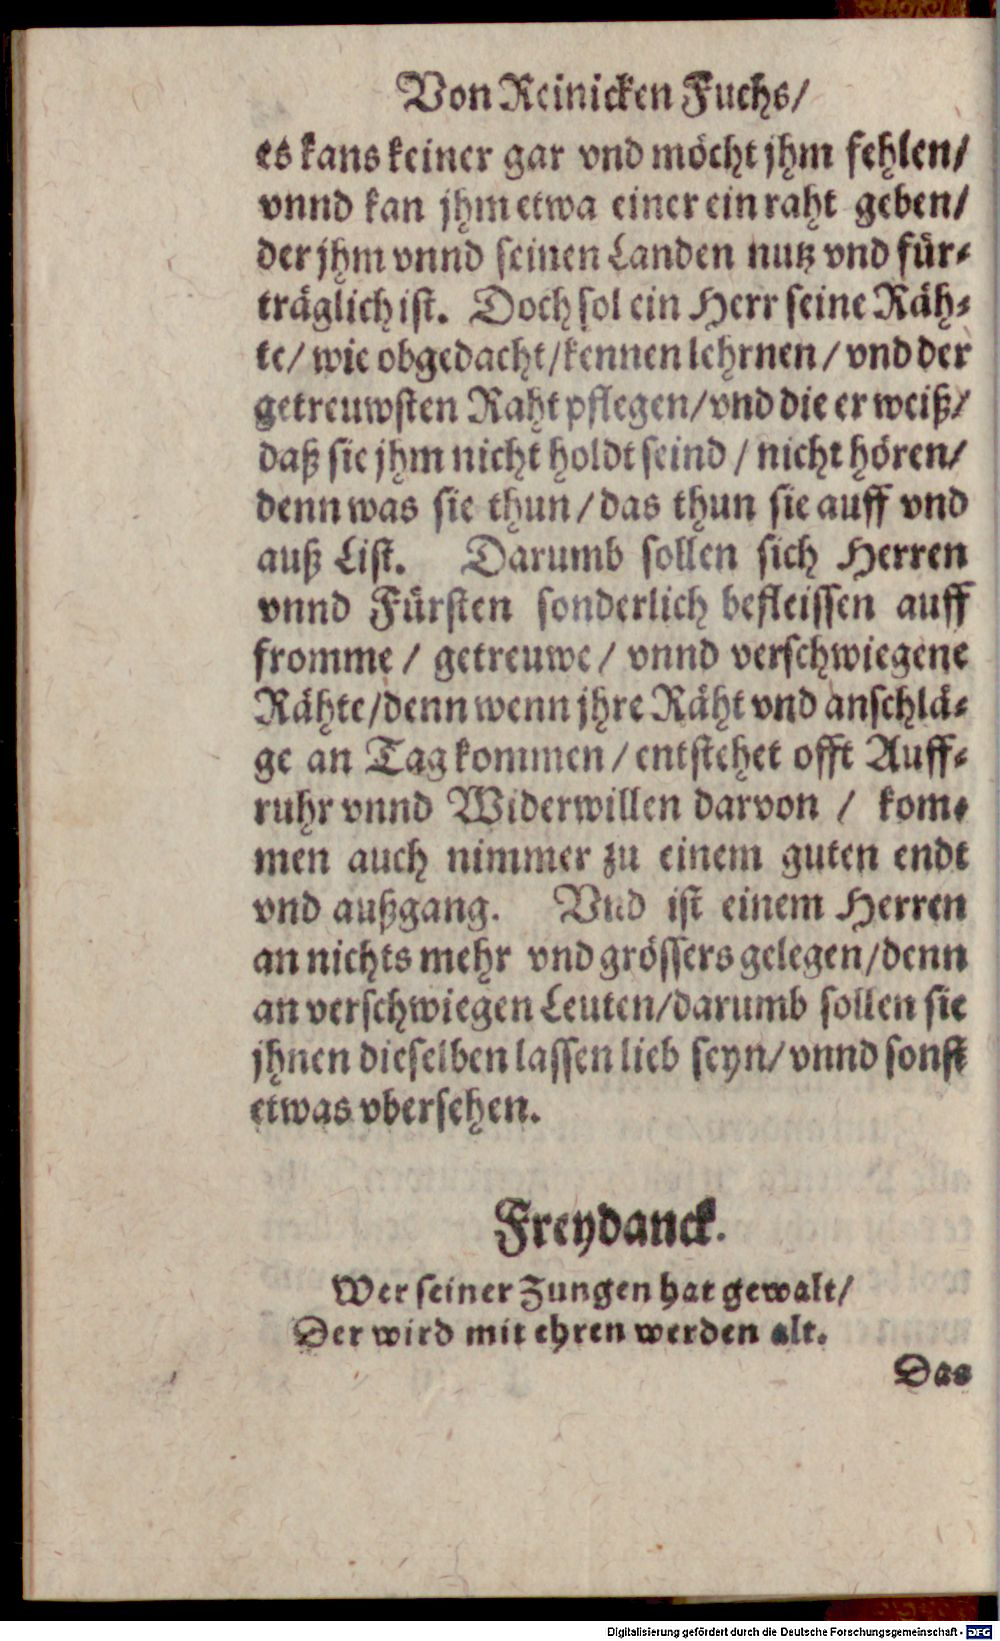 Von Reinicken Fuchs/
es kans keiner gar vnd möcht jhm fehlen/
vnnd kan jhm etwa einer ein raht geben/
der jhm vnnd seinen Landen nutz vnd für-
träglich ist. Doch sol ein Herr seine Räh-
te/ wie obgedacht/ kennen lehrnen/ vnd der
getreuwsten Raht pflegen/ vnd die er weiß/
daß sie jhm nicht holdt seind/ nicht hören/
denn was sie thun/ das thun sie auff vnd
auß List. Darumb sollen sich Herren
vnnd Fürsten sonderlich befleissen auff
fromme/ getreuwe/ vnnd verschwiegene
Rähte/ denn wenn jhre Räht vnd anschlä-
ge an Tag kommen/ entstehet offt Auff-
ruhr vnnd Widerwillen darvon/ kom-
men auch nimmer zu einem guten endt
vnd außgang. Vnd ist einem Herren
an nichts mehr vnd grössers gelegen/ denn
an verschwiegen Leuten/ darumb sollen sie
jhnen dieselben lassen lieb seyn/ vnnd sonst
etwas vbersehen.
Freydanck.
Wer seiner Zungen hat gewalt/
Der wird mit ehren werden alt.
Das
Digitalisierung gefördert durch die Deutsche Forschungsgemeinschaft - DFG